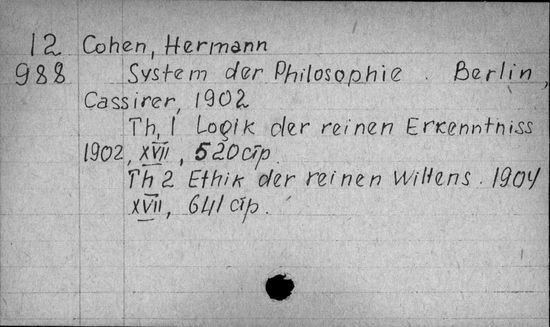 12 Cohen, Hermann
988 System der Philosophie. Berlin,
Cassirer, 1902
Th, 1 Logik der reinen Erkenntniss
1902, XVII, 520 стр.
Th 2 Ethik der reinen Willens. 1904
XVII, 641 стр.